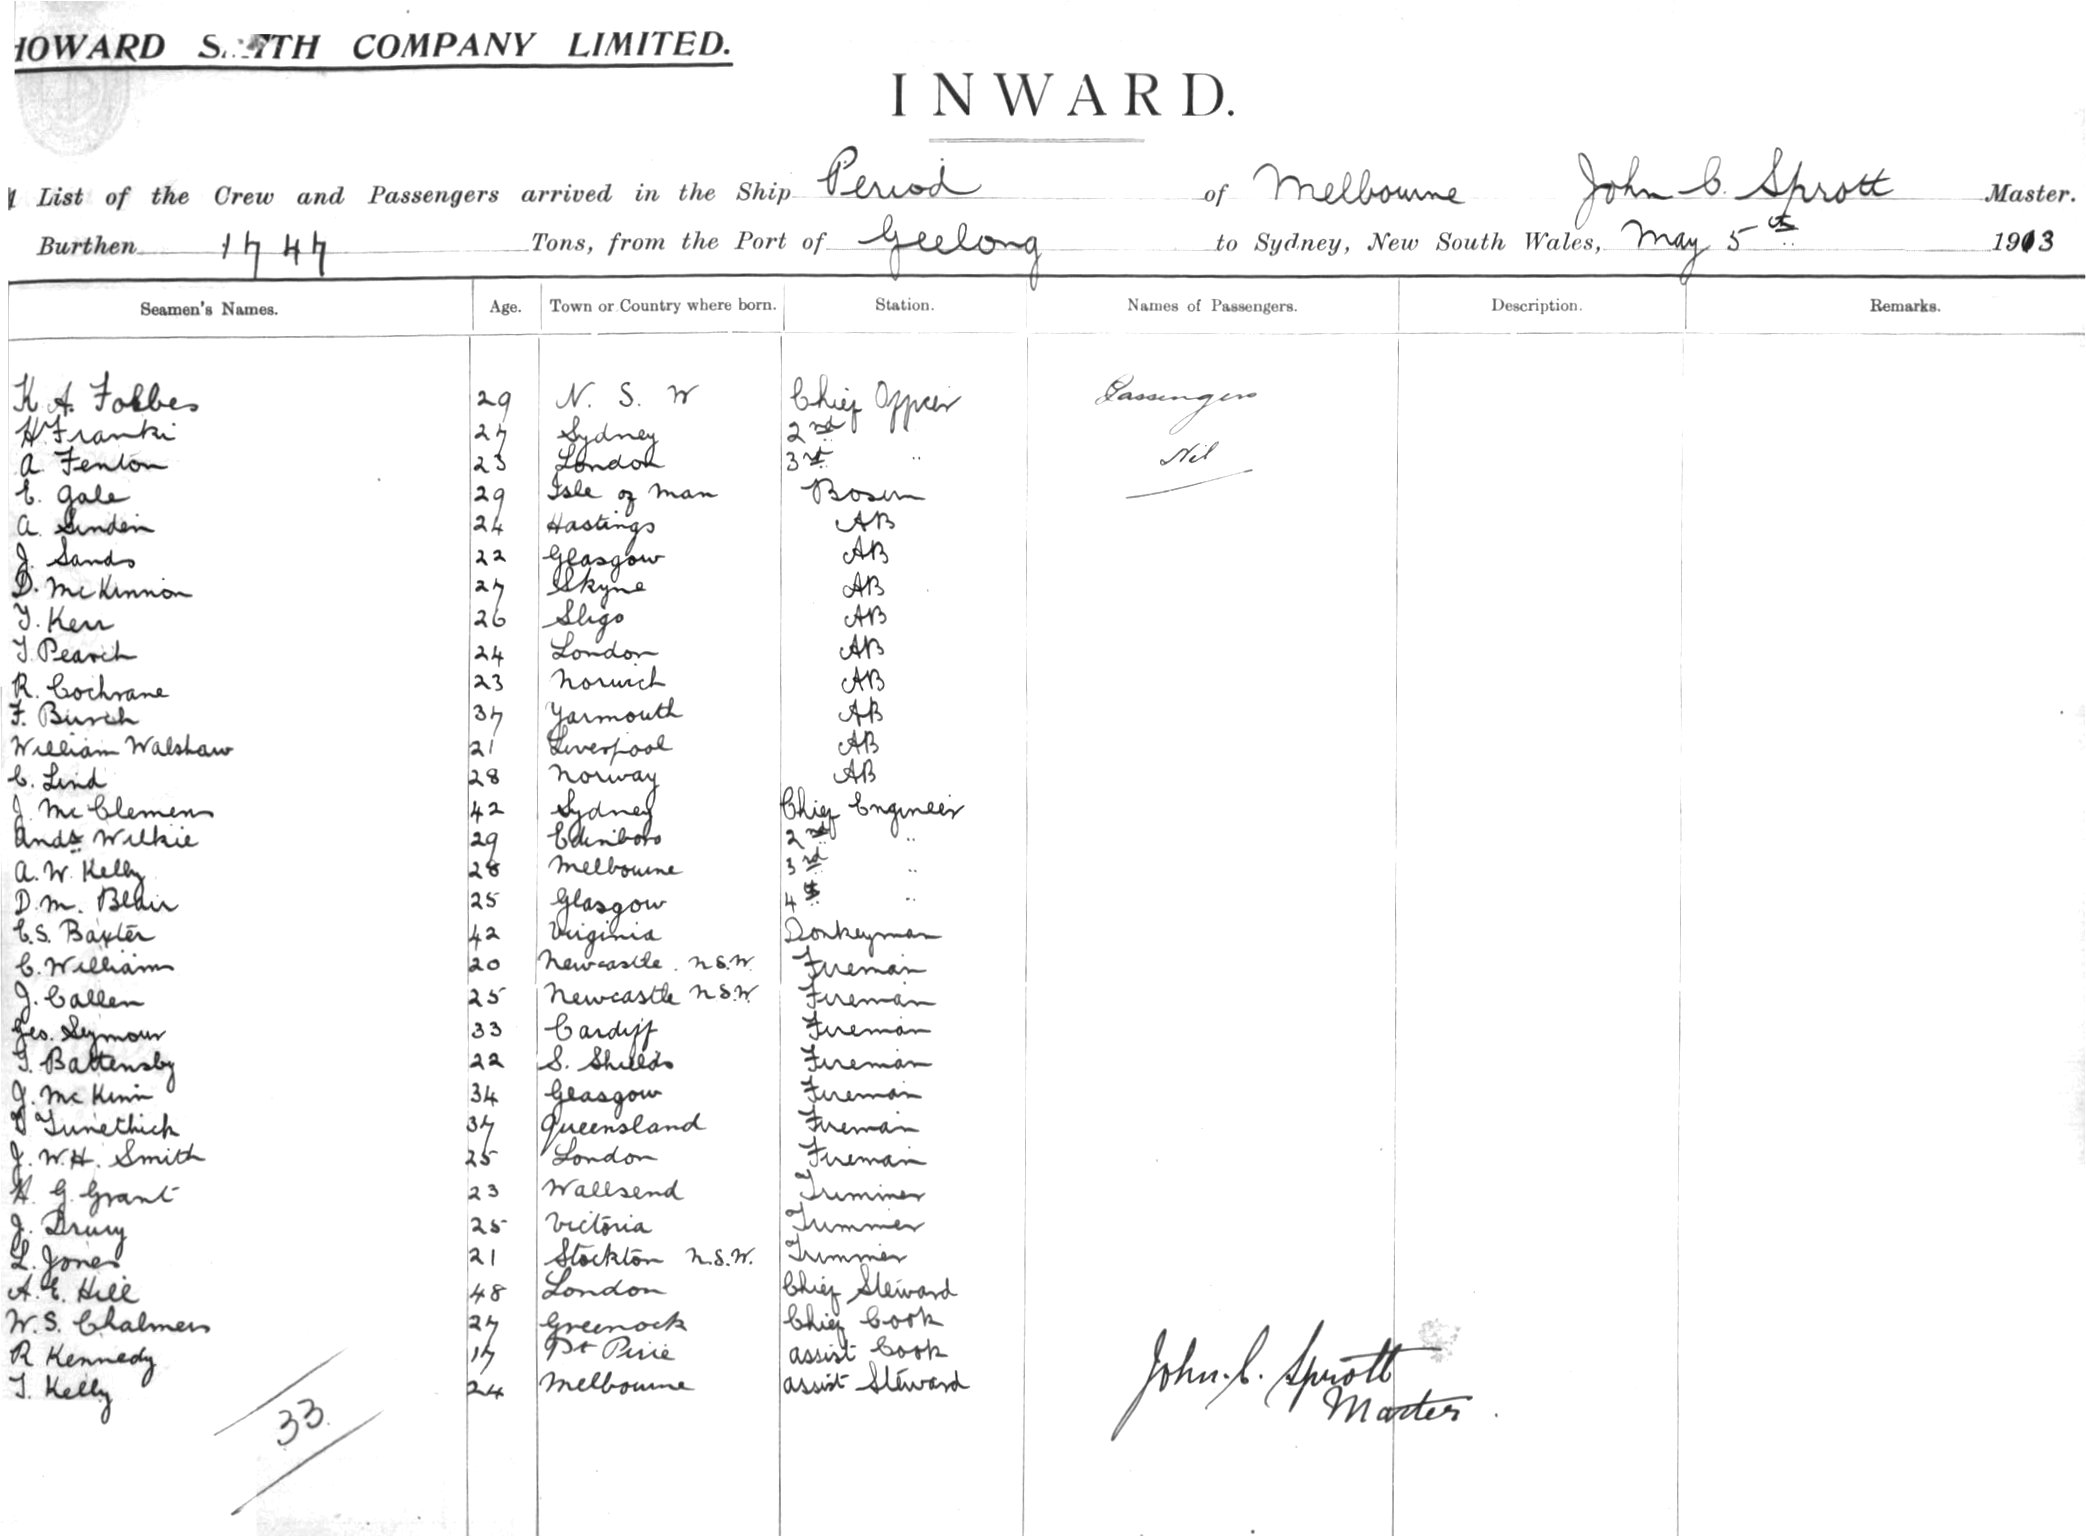 HOWARD SMITH COMPANY LIMITED.
INWARD.
A List of the Crew and Passengers arrived in the Ship Period of Melbourne John C. Sprott Master.
Burthen 1747 Tons, from the Port of Geelong to Sydney, New South Wales, May 5th 1913
Seamen's Names. Age. Town or Country where born. Station. Names of Passengers. Description. Remarks.
K A. Forbes 29 N. S. W Chief Officer Passengers
H. Franki 27 Sydney 2nd
A Fenton 23 London 3rd " Nil
C. Gale 29 Isle of Man Bosun
A. Sinden 24 Hastings AB
J. Sands 22 Glasgow AB
D. McKinnon 27 Skyne AB
T. Kerr 26 Sligo AB
T. Pearch 24 London AB
R. Cochrane 23 Norwich AB
F. Burch 37 Yarmouth AB
William Walshaw 21 Liverpool AB
C. Lind 28 Norway AB
J. McClemens 42 Sydney Chief Engineer
Andw Wilkie 29 Edinboro 2nd "
A. W. Kelly 28 Melbourne 3rd "
D. M. Blair 25 Glasgow 4th "
C. S. Baxter 42 Virginia Donkeyman
C. Williams 20 Newcastle. N.S.W. Fireman
J. Callen 25 Newcastle N.S.W. Fireman
Geo. Seymour 33 Cardiff Fireman
T. Battensby 22 S. Shields Fireman
J. McKinn 34 Glasgow Fireman
37 Queensland Fireman
J. W. H. Smith 25 London Fireman
H. G. Grant 23 Wallsend Trimmer
J. Drury 25 Victoria Trimmer
L. Jones 21 Stockton N.S.W. Trimmer
A. E. Hill 48 London Chief Steward
W. S. Chalmers 27 Greenock Chief Cook
R Kennedy 17 Pt Pirie assist Cook
T. Kelly 24 Melbourne assist Steward
33
John. C. Sprott
Master.